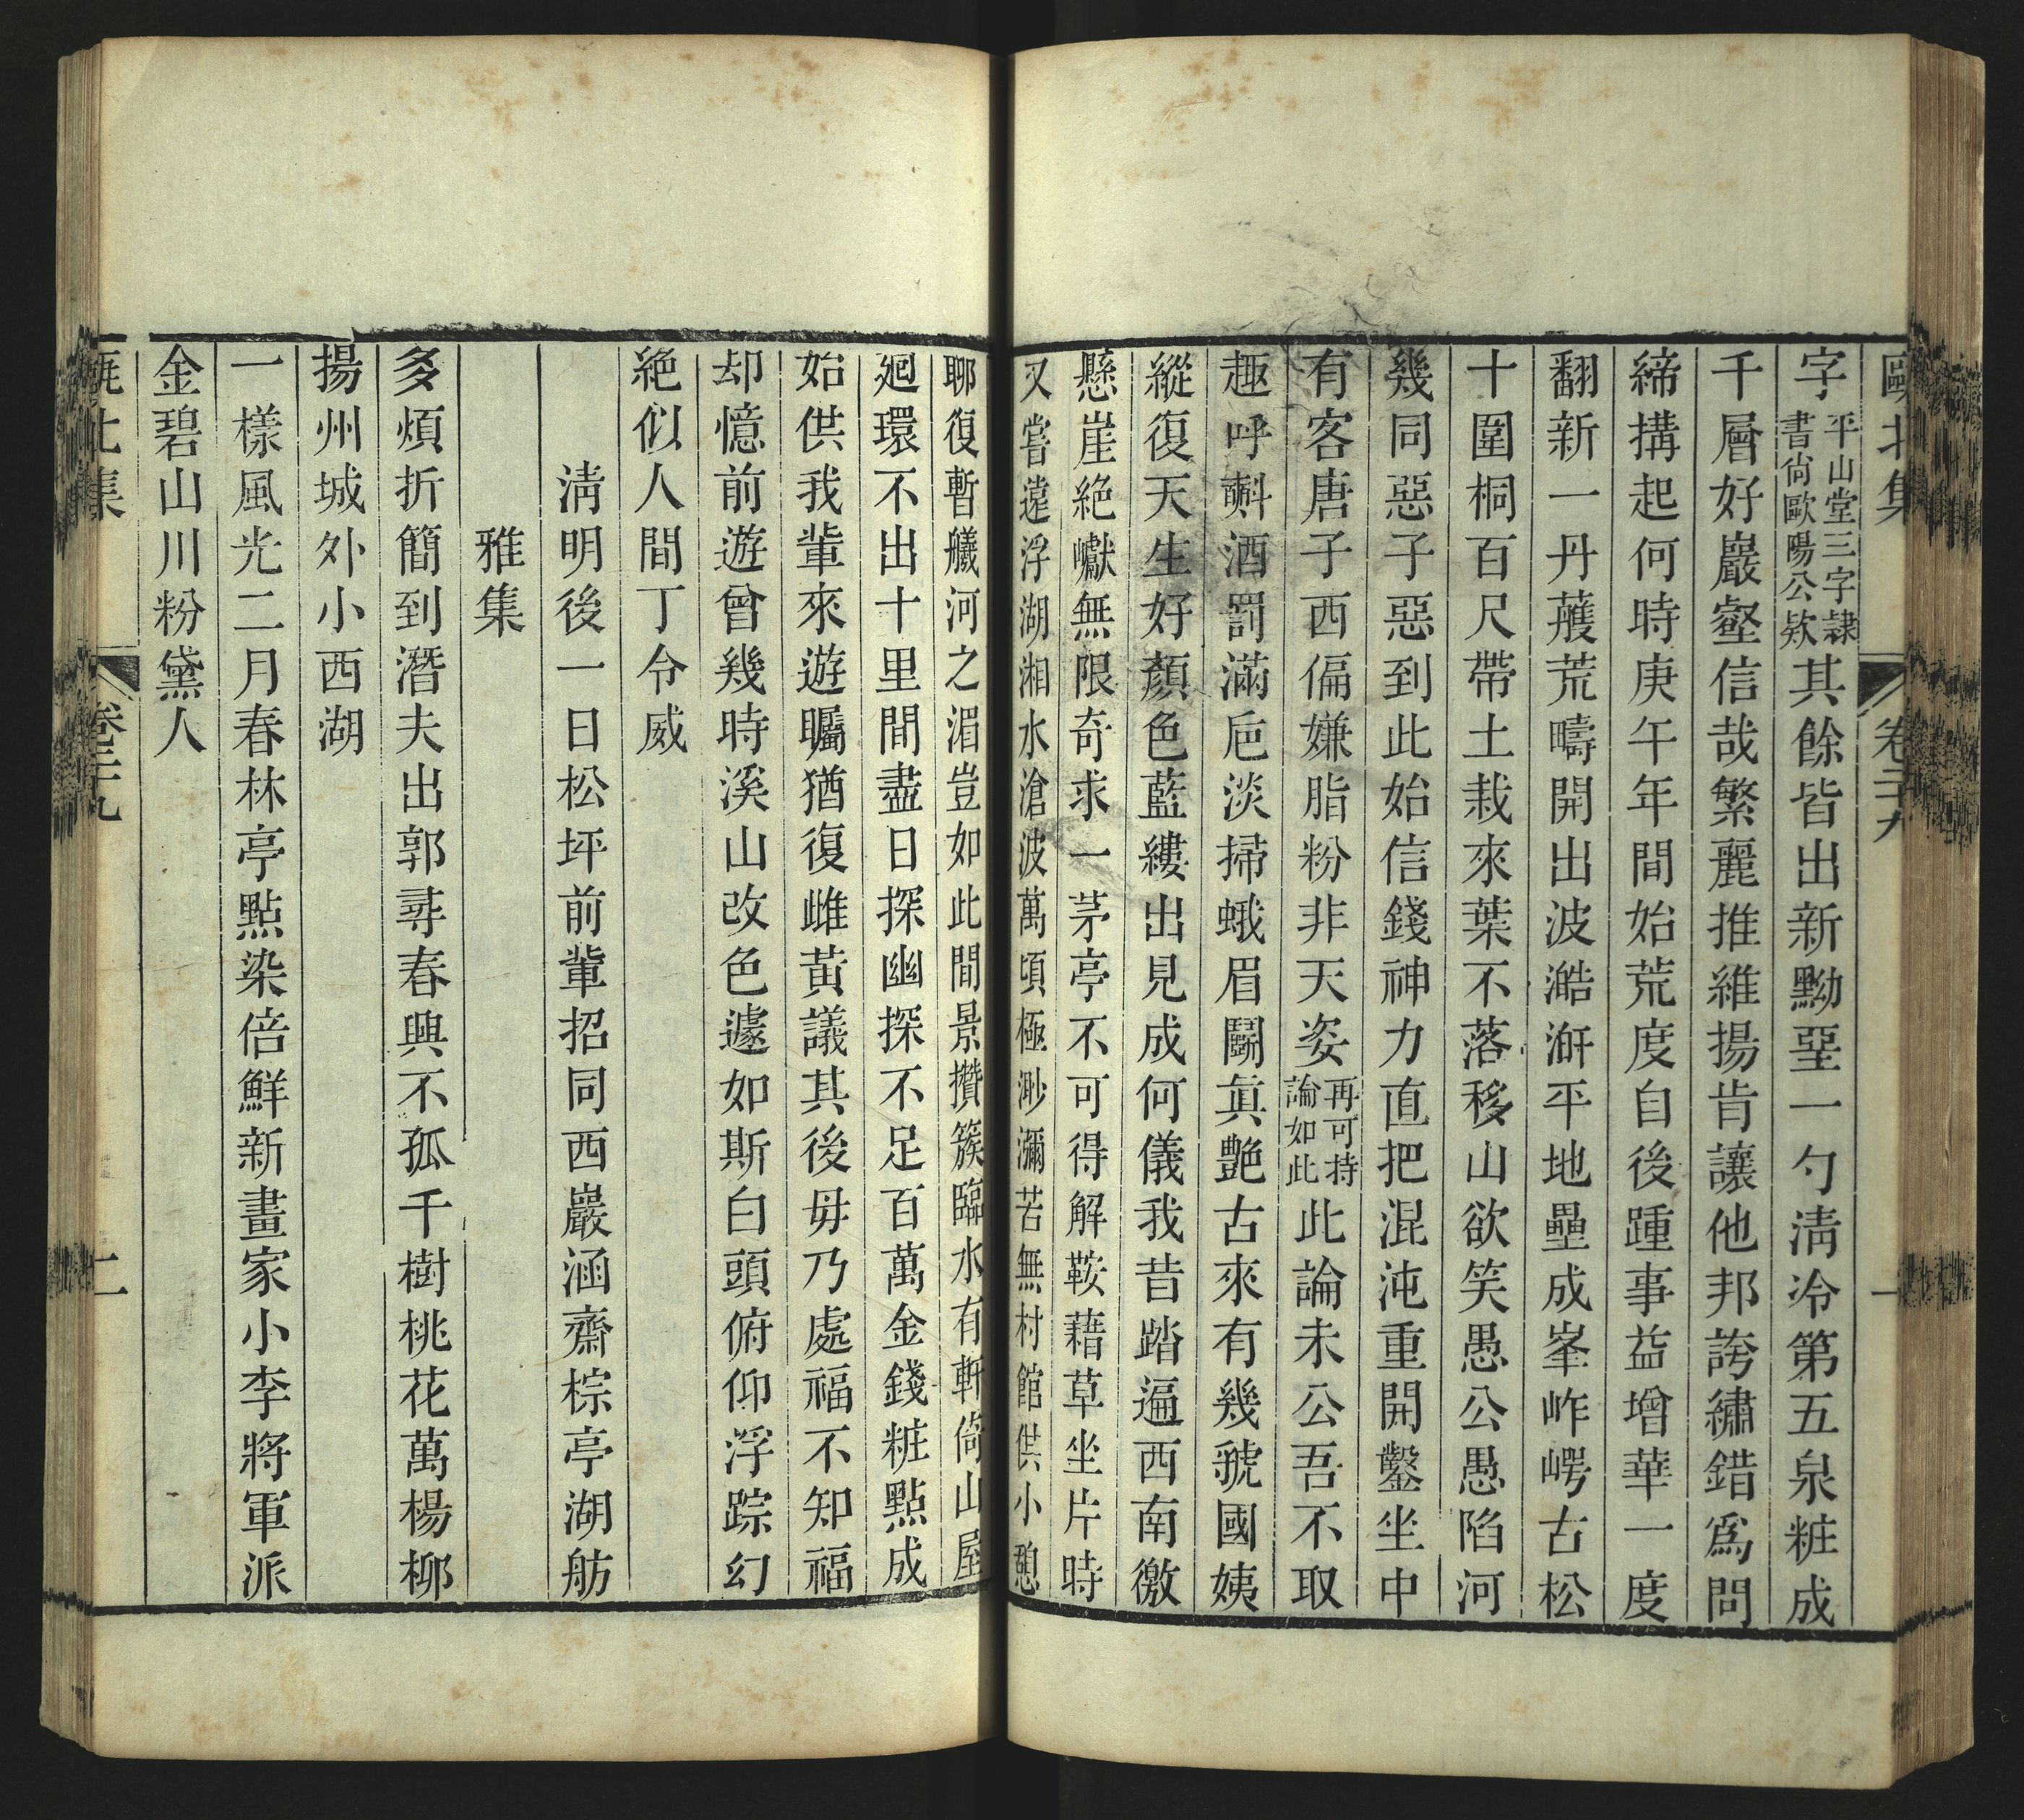 甌北集 卷二十九 一
字平山堂三字隷書尙歐陽公欵其餘皆出新黝堊一勺淸冷第五泉粧成
千層好巖壑信哉繁麗推維揚肯讓他邦誇繡錯爲問
締搆起何時庚午年間始荒度自後踵事益增華一度
翻新一丹雘荒疇開出波澔汧平地壘成峯岞崿古松
十圍桐百尺帶土栽來葉不落移山欲笑愚公愚陷河
幾同惡子惡到此始信錢神力直把混沌重開鑿坐中
有客唐子西偏嫌脂粉非天姿再可持論如此此論未公吾不取
趣呼㪺酒罰滿巵淡掃蛾眉鬭眞艷古來有幾虢國姨
縱復天生好顏色藍縷出見成何儀我昔踏遍西南徼
懸崖絶巘無限奇求一茅亭不可得解鞍藉草坐片時
又嘗遠浮湖湘水滄波萬頃極渺瀰苦無村館供小憩
聊復暫艤河之湄豈如此間景攢簇臨水有軒倚山屋
廻環不出十里間盡日探幽探不足百萬金錢粧點成
始供我輩來遊矚猶復雌黃議其後毋乃處福不知福
却憶前遊曾幾時溪山改色遽如斯白頭俯仰浮踪幻
絶似人間丁令威
淸明後一日松坪前輩招同西巖涵齋棕亭湖舫
雅集
多煩折簡到潛夫出郭尋春興不孤千樹桃花萬楊柳
揚州城外小西湖
一樣風光二月春林亭點染倍鮮新畫家小李將軍派
金碧山川粉黛人
甌北集 卷二十九 二